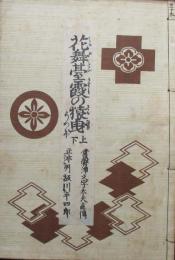 花舞臺霞の猿曳
うつぼ
上下
常磐津文字太夫直傳
正本所 坂川平四郎